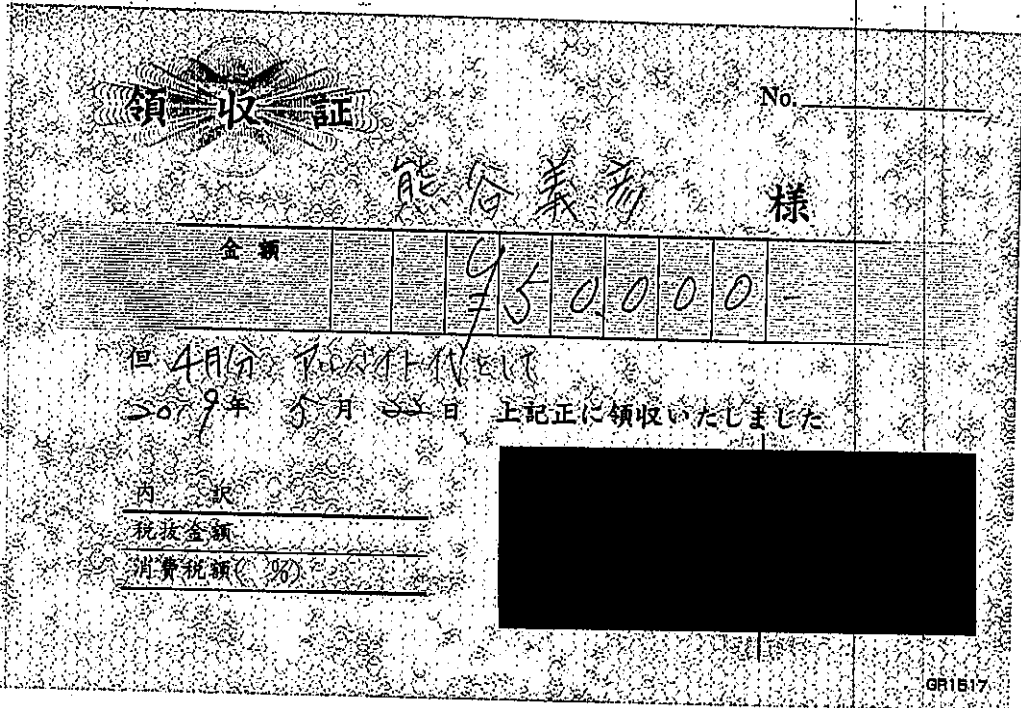 領収証
No.
熊谷義彦 様
金額
¥50,000-
但 4月分 アルバイト代として
2019年 5月 22日 上記正に領収いたしました
内 訳
税抜金額
消費税額( %)
GR1517